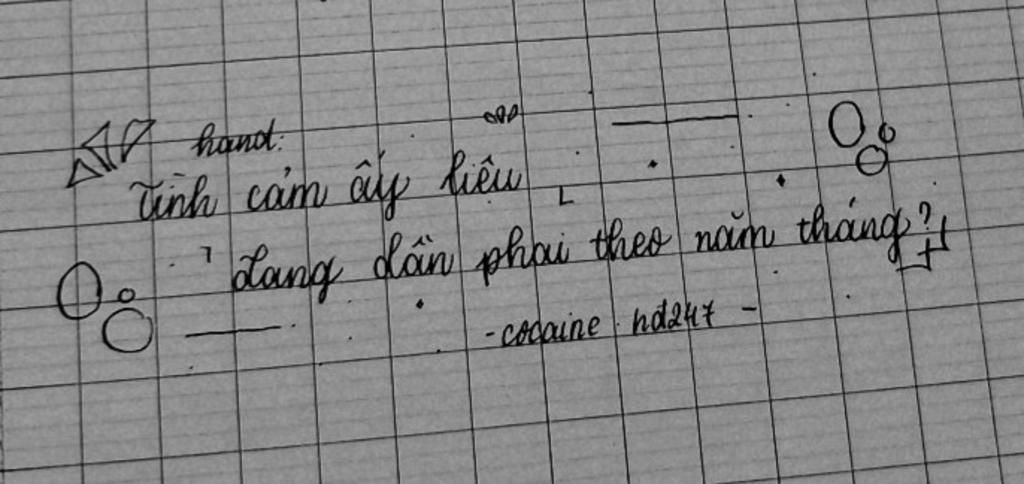 hand:
Tình cảm ấy liệu
dang dần phai theo năm tháng?
-cocaine hd247 -